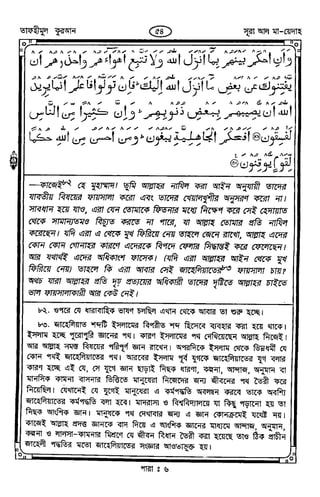 তাফহীমুল কুরআন ৫৪ সূরা আল মা-য়েদাহ
وَأَنِ احْكُمْ بَيْنَهُمْ بِمَا أَنْزَلَ اللَّهُ وَلَا تَتَّبِعْ أَهْوَاءَهُمْ وَاحْذَرْهُمْ أَنْ
يَفْتِنُوكَ عَنْ بَعْضِ مَا أَنْزَلَ اللَّهُ إِلَيْكَ فَإِنْ تَوَلَّوْا فَاعْلَمْ أَنَّمَا يُرِيدُ
اللَّهُ أَنْ يُصِيبَهُمْ بِبَعْضِ ذُنُوبِهِمْ وَإِنَّ كَثِيرًا مِنَ النَّاسِ
لَفَاسِقُونَ أَفَحُكْمَ الْجَاهِلِيَّةِ يَبْغُونَ وَمَنْ أَحْسَنُ مِنَ اللَّهِ حُكْمًا
لِقَوْمٍ يُوقِنُونَ
—কাজেই৮২ হে মুহাম্মাদ! তুমি আল্লাহর নাযিল করা আইন অনুযায়ী তাদের
যাবতীয় বিষয়ের ফায়সালা করো এবং তাদের খেয়ালখুশীর অনুসরণ করো না।
সাবধান হয়ে যাও, এরা যেন তোমাকে ফিতনার মধ্যে নিক্ষেপ করে সেই হেদায়াত
থেকে সামান্যতমও বিচ্যুত করতে না পারে, যা আল্লাহ তোমার প্রতি নাযিল
করেছেন। যদি এরা এ থেকে মুখ ফিরিয়ে নেয় তাহলে জেনে রাখো, আল্লাহ এদের
কোন কোন গোনাহর কারণে এদেরকে বিপদে ফেলার সিদ্ধান্তই করে ফেলেছেন।
আর যথার্থই এদের অধিকাংশ ফাসেক। (যদি এরা আল্লাহর আইন থেকে মুখ
ফিরিয়ে নেয়) তাহলে কি এরা আবার সেই জাহেলিয়াতের৮৩ ফায়সালা চায়?
অথচ যারা আল্লাহর প্রতি দৃঢ় প্রত্যয়ের অধিকারী তাদের দৃষ্টিতে আল্লাহর চাইতে
ভাল ফায়সালাকারী আর কেউ নেই।
৮২. ওপরে যে ধারাবাহিক ভাষণ চলছিল এখান থেকে আবার তা শুরু হচ্ছে।
৮৩. জাহেলিয়াত শব্দটি ইসলামের বিপরীত শব্দ হিসেবে ব্যবহার করা হয়ে থাকে।
ইসলাম হচ্ছে পুরোপুরি জ্ঞানের পথ। কারণ ইসলামের পথ দেখিয়েছেন আল্লাহ নিজেই।
আর আল্লাহ সমস্ত বিষয়ের পরিপূর্ণ জ্ঞান রাখেন। অপরদিকে ইসলাম থেকে ভিন্নধর্মী যে
কোন পথই জাহেলিয়াতের পথ। আরবের ইসলাম পূর্ব যুগকে জাহেলিয়াতের যুগ বলার
কারণ হচ্ছে এই যে, সে যুগে জ্ঞান ছাড়াই নিছক ধারণা, কল্পনা, আন্দাজ, অনুমান বা
মানসিক কামনা বাসনার ভিত্তিতে মানুষেরা নিজেদের জন্য জীবনের পথ তৈরী করে
নিয়েছিল। যেখানেই যে যুগেই মানুষেরা এ কর্মপদ্ধতি অবলম্বন করবে তাকে অবশ্যি
জাহেলিয়াতের কর্মপদ্ধতি বলা হবে। মাদরাসা ও বিশ্ববিদ্যালয়ে যা কিছু পড়ানো হয় তা
নিছক আংশিক জ্ঞান। মানুষকে পথ দেখাবার জন্য এ জ্ঞান কোনক্রমেই যথেষ্ট নয়।
কাজেই আল্লাহ প্রদত্ত জ্ঞানকে বাদ দিয়ে এ আংশিক জ্ঞানের মাধ্যমে আন্দাজ, অনুমান,
কল্পনা ও লালসা-কামনার মিশ্রণে যে জীবন বিধান তৈরী করা হয়েছে তাও ঠিক প্রাচীন
জাহেলী পদ্ধতির মতো জাহেলিয়াতের সংজ্ঞার আওতাভুক্ত হয়।
পারা : ৬